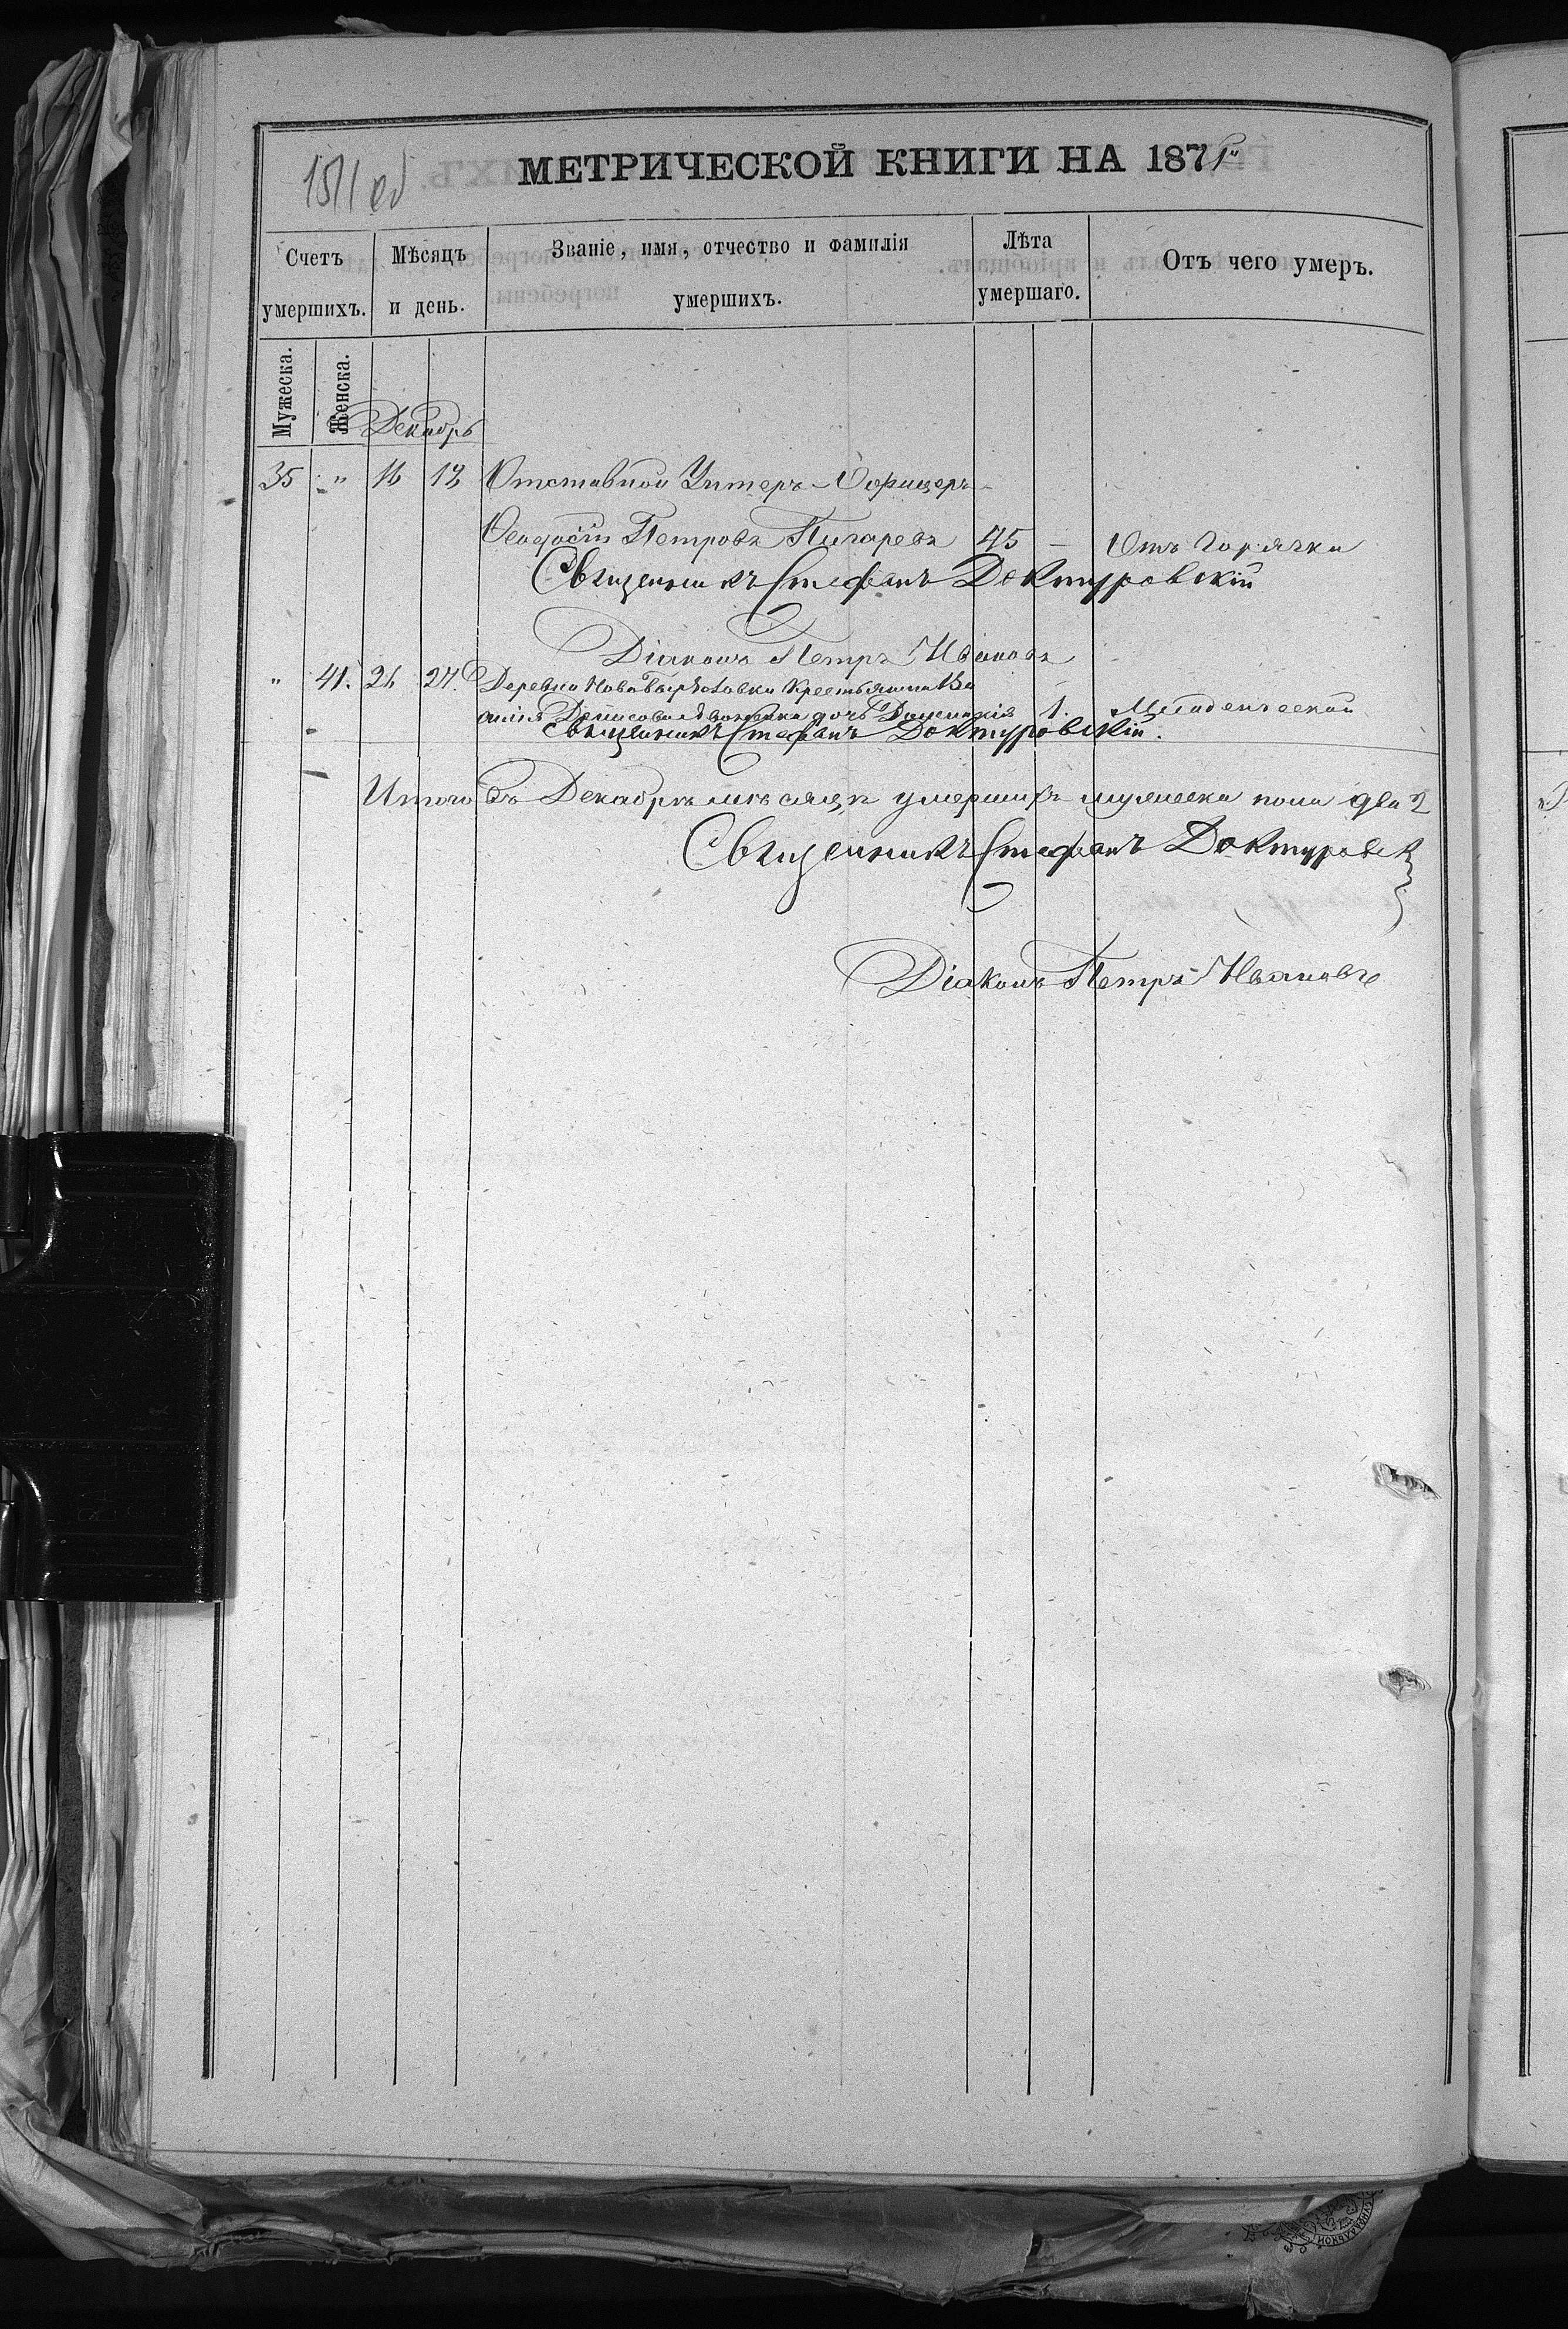 1511 об
МЕТРИЧЕСКОЙ КНИГИ НА 1871
Счетъ умершихъ.
Мѣсяцъ и день.
Званіе, имя, отчество и фамилія умершихъ.
Лѣта умершаго.
Отъ чего умеръ.
Мужеска.
Женска.
Декабрь
35 " 16 18 Отставной Унтеръ-Офицеръ
Ѳеодосій Петровъ Пигаревъ 45 — Отъ горячки
Священникъ Стефанъ Доктуровскій
Діаконъ Петръ Ивановъ
" 41. 26 27. Деревни Крестьянина Ва
силія Денисова дочь 1. Младенческой
Священникъ Стефанъ Доктуровскій.
Итого въ Декабрѣ мѣсяцѣ умершихъ мужеска пола два 2
Священникъ Стефанъ Доктуровскій
Діаконъ Петръ Ивановъ